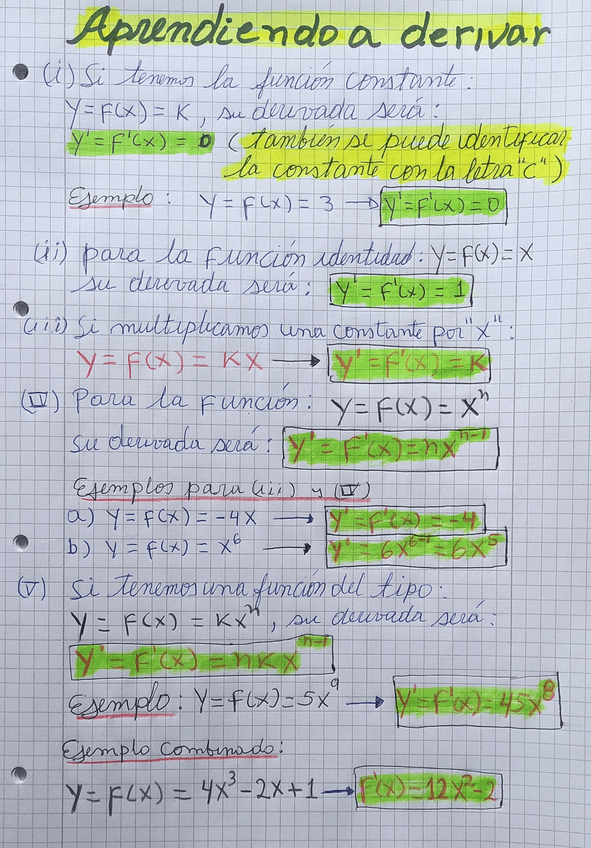 Aprendiendo a derivar
(i) Si tenemos la función constante:
y=f(x) = K, su derivada será:
y'=f'(x) = 0 (también se puede identificar
la constante con la letra "c")
Ejemplo: y=f(x)=3 → y'=f'(x)=0
(ii) para la función identidad: y=f(x)=x
su derivada será: y'=f'(x)=1
(iii) Si multiplicamos una constante por "x":
y=f(x)=Kx → y'=f'(x)=K
(IV) Para la función: y=f(x)=xⁿ
su derivada será: y'=f'(x)=nxⁿ⁻¹
Ejemplos para (iii) y (IV)
a) y=f(x)=-4x → y'=f'(x)=-4
b) y=f(x)=x⁶ → y'=6x⁶⁻¹=6x⁵
(V) Si tenemos una función del tipo:
y=f(x)=Kxⁿ, su derivada será:
y'=f'(x)=nKxⁿ⁻¹
Ejemplo: y=f(x)=5x⁹ → y'=f'(x)=45x⁸
Ejemplo combinado:
y=f(x)=4x³-2x+1 → f'(x)=12x²-2